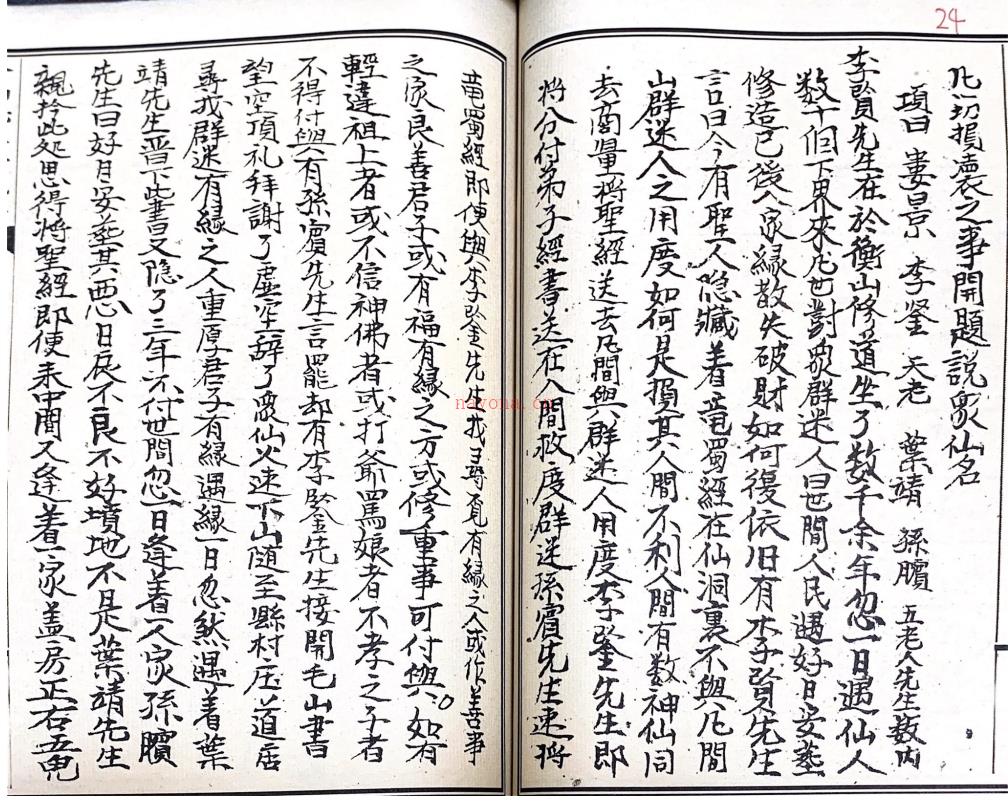 24
凡一切損瀼衣之事開題説衆仙名
項曰 婁景 李筌 天老 葉靖 孫臏 五老人先生数内
李賢先生在於衡山修道坐了数千余年忽一日遇仙人
数十個下界來凡世對衆群迷人曰世間人民遇好日安塟
修造已後人家縁散失破財如何復依旧有李賢先生
言曰今有聖人隐藏着竜蜀經在仙洞裏不與凡間
山群迷人之用度如何是損其人間不利人間有数神仙同
去商量將聖經送去凡間與群迷人用度李筌先生即
將分付弟子經書送在人間救度群迷孫賓先生速將
竜蜀經即便與李筌先生找尋覓有縁之人或作善事
之家良善君子或有福有縁之方或修重事可付與如有
輕違祖上者或不信神佛者或打爺罵娘者不孝之子者
不得付與有孫賓先生言罷却有李筌先生接開毛山書
望空頂礼拜謝了虚空辞了衆仙火速下山随至縣村庄道店
尋找群迷有縁之人重厚君子有縁遇縁一日忽然遇着葉
靖先生晋下此書又隐了三年不付世間忽一日逢着一人家孫臏
先生曰好月安塟其悪日辰不良不好墳地不是葉靖先生
親拎此処思得將聖經即便来中間又逢着一家盖房正右五鬼
nayona.cn